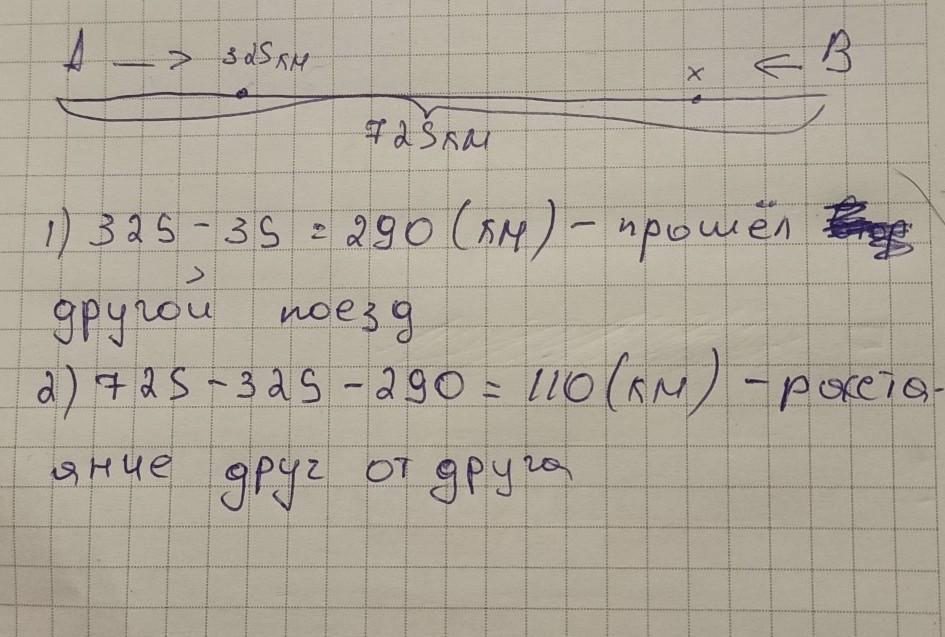 A —> 325км x <— B
725км
1) 325 - 35 = 290 (км) - прошёл
другой поезд
2) 725 - 325 - 290 = 110 (км) - расстоя-
яние друг от друга